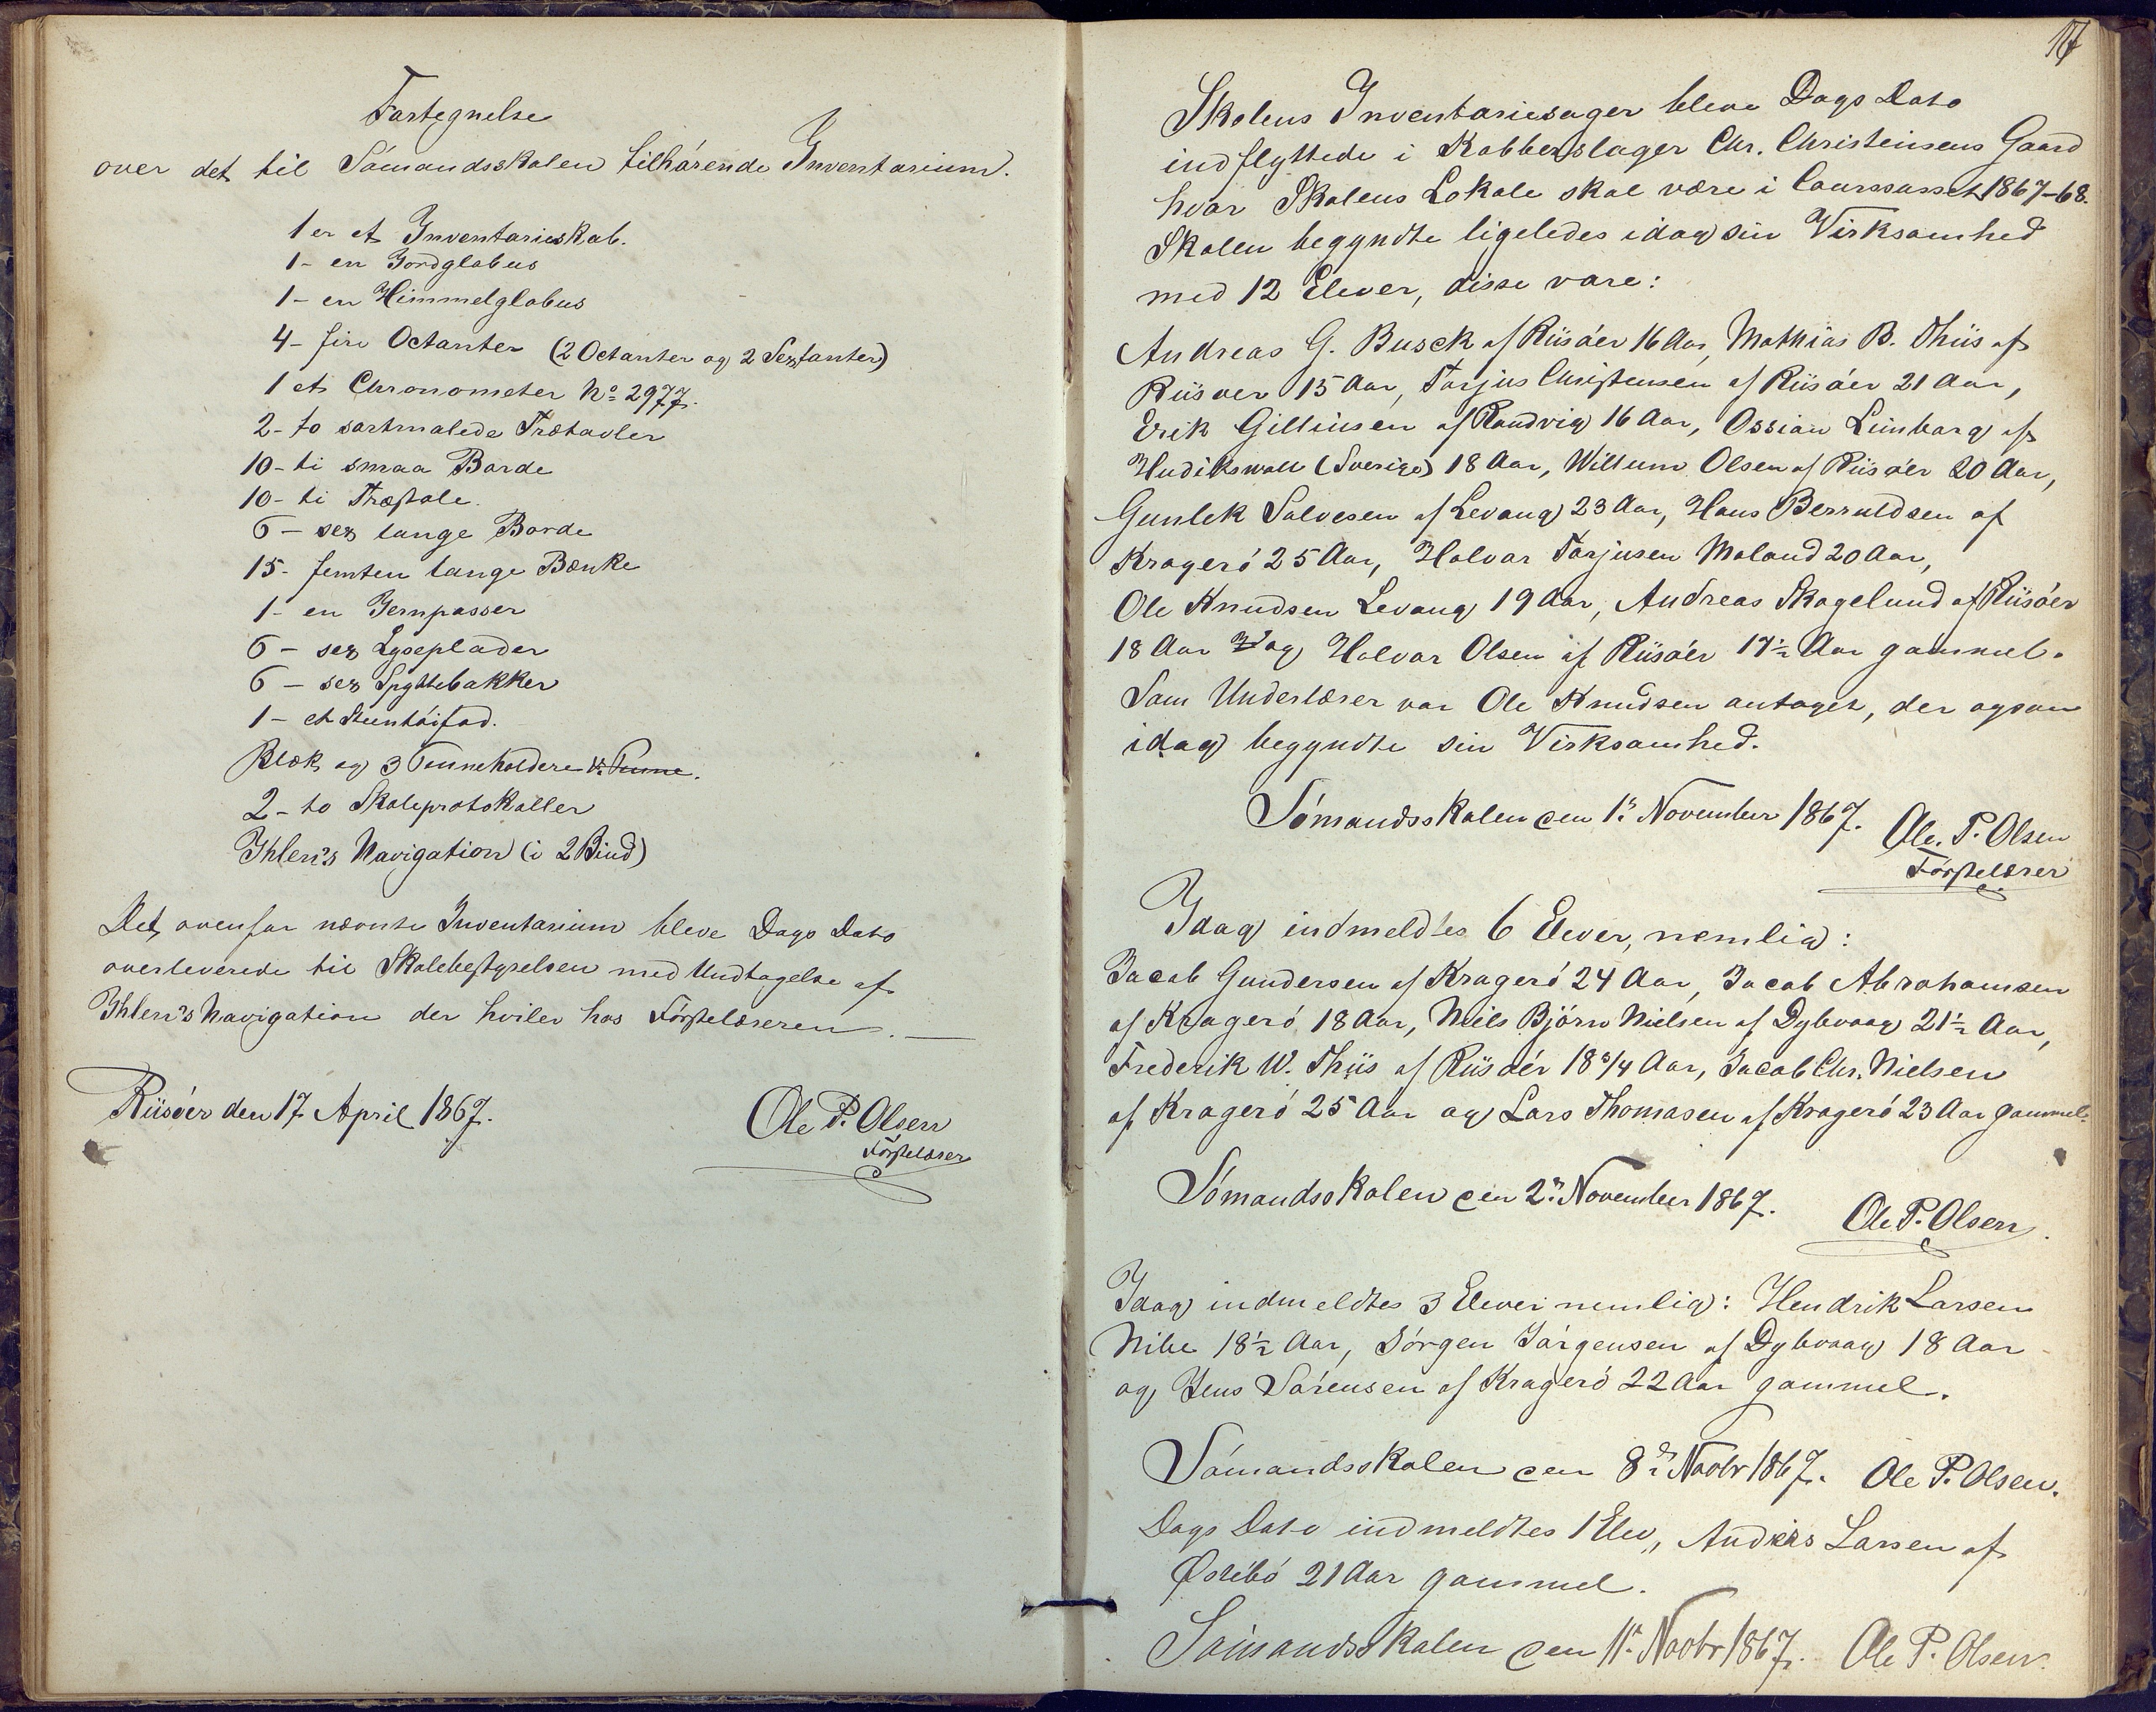 Fortegnelse
over det til Sömandsskolen tilhörende Inventarium.
1 er et Inventarieskab.
1 - en Jordglobus
1 - en Himmelglobus
4 - fire Octanter (2 Octanter og 2 Sextanter)
1 et Chronometer No 2977.
2 - to sortmalede Trætavler
10 - ti smaa Borde
10 - ti Træstole.
6 - sex lange Borde
15 - femten lange Bænke
1 - en Jernpasser
6 - sex Lyseplader
6 - sex Spyttebakker
1 - et Steentöifad.
Blæk og 3 Penneholdere
2 - to Skoleprotokoller
Ihlen's Navigation (i 2 Bind)
Det ovenfor nævnte Inventarium bleve Dags Dato
overleverede til Skolebestyrelsen med Undtagelse af
Ihlen's Navigation der hviler hos Förstelæreren. —
Riisöer den 17 April 1867.
Ole P. Olsen
Förstelærer
17
Skolens Inventariesager bleve Dags Dato
indflyttede i Kobberslager Chr. Christensens Gaard
hvor Skolens Lokale skal være i Courssusset 1867-68.
Skolen begyndte ligeledes idag sin Virksomhed
med 12 Elever, disse vare:
Andreas G. Busck af Riisöer 16 Aar, Mathias B. Thiis af
Riisöer 15 Aar, Torjus Christensen af Riisöer 21 Aar,
Erik Gillinsen af Randvig 16 Aar, Ossian Limbarg af
Hudikswall (Sverige) 18 Aar, Willum Olsen af Riisöer 20 Aar,
Gunlek Salvesen af Levang 23 Aar, Hans Berruldsen af
Kragerö 25 Aar, Halvor Torjusen Moland 20 Aar,
Ole Knudsen Levang 19 Aar, Andreas Skagelund af Riisöer
18 Aar og Halvor Olsen af Riisöer 17½ Aar gammel.
Som Underlærer var Ole Knudsen antaget, der ogsaa
idag begyndte sin Virksomhed.
Sömandsskolen den 1ste November 1867.
Ole. P. Olsen
Förstelærer
Idag indmeldtes 6 Elever, nemlig:
Jacob Gundersen af Kragerö 24 Aar, Jacob Abrahamsen
af Kragerö 18 Aar, Niels Björn Nielsen af Dybvaag 21½ Aar,
Frederik W. Thiis af Riisöer 18 3/4 Aar, Jacob Chr. Nielsen
af Kragerö 25 Aar og Lars Thomasen af Kragerö 23 Aar gammel.
Sömandsskolen den 2n November 1867.
Ole P. Olsen.
Idag indmeldtes 3 Elever nemlig: Hendrik Larsen
Nibe 18½ Aar, Jörgen Jörgensen af Dybvaag 18 Aar
og Jens Sörensen af Kragerö 22 Aar gammel.
Sömandsskolen den 8de Novbr 1867. Ole P. Olsen.
Dags Dato indmeldtes 1 Elev, Anders Larsen af
Östebö 21 Aar gammel.
Sömandsskolen den 11te Novbr 1867. Ole P. Olsen.